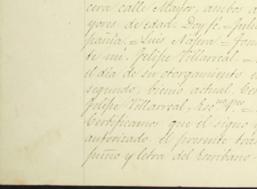 cera calle Mayor, ambos a
yores de edad. Doy fé. = Feli
pañía. = Luis Nájera = Jos
te mí. Felipe Villarreal. =
el día de su otorgamiento e
segundo bienio actual. Cer
Felipe Villarreal,
Certificamos que el signo
autorizado el presente tras
puño y letra del Escribano